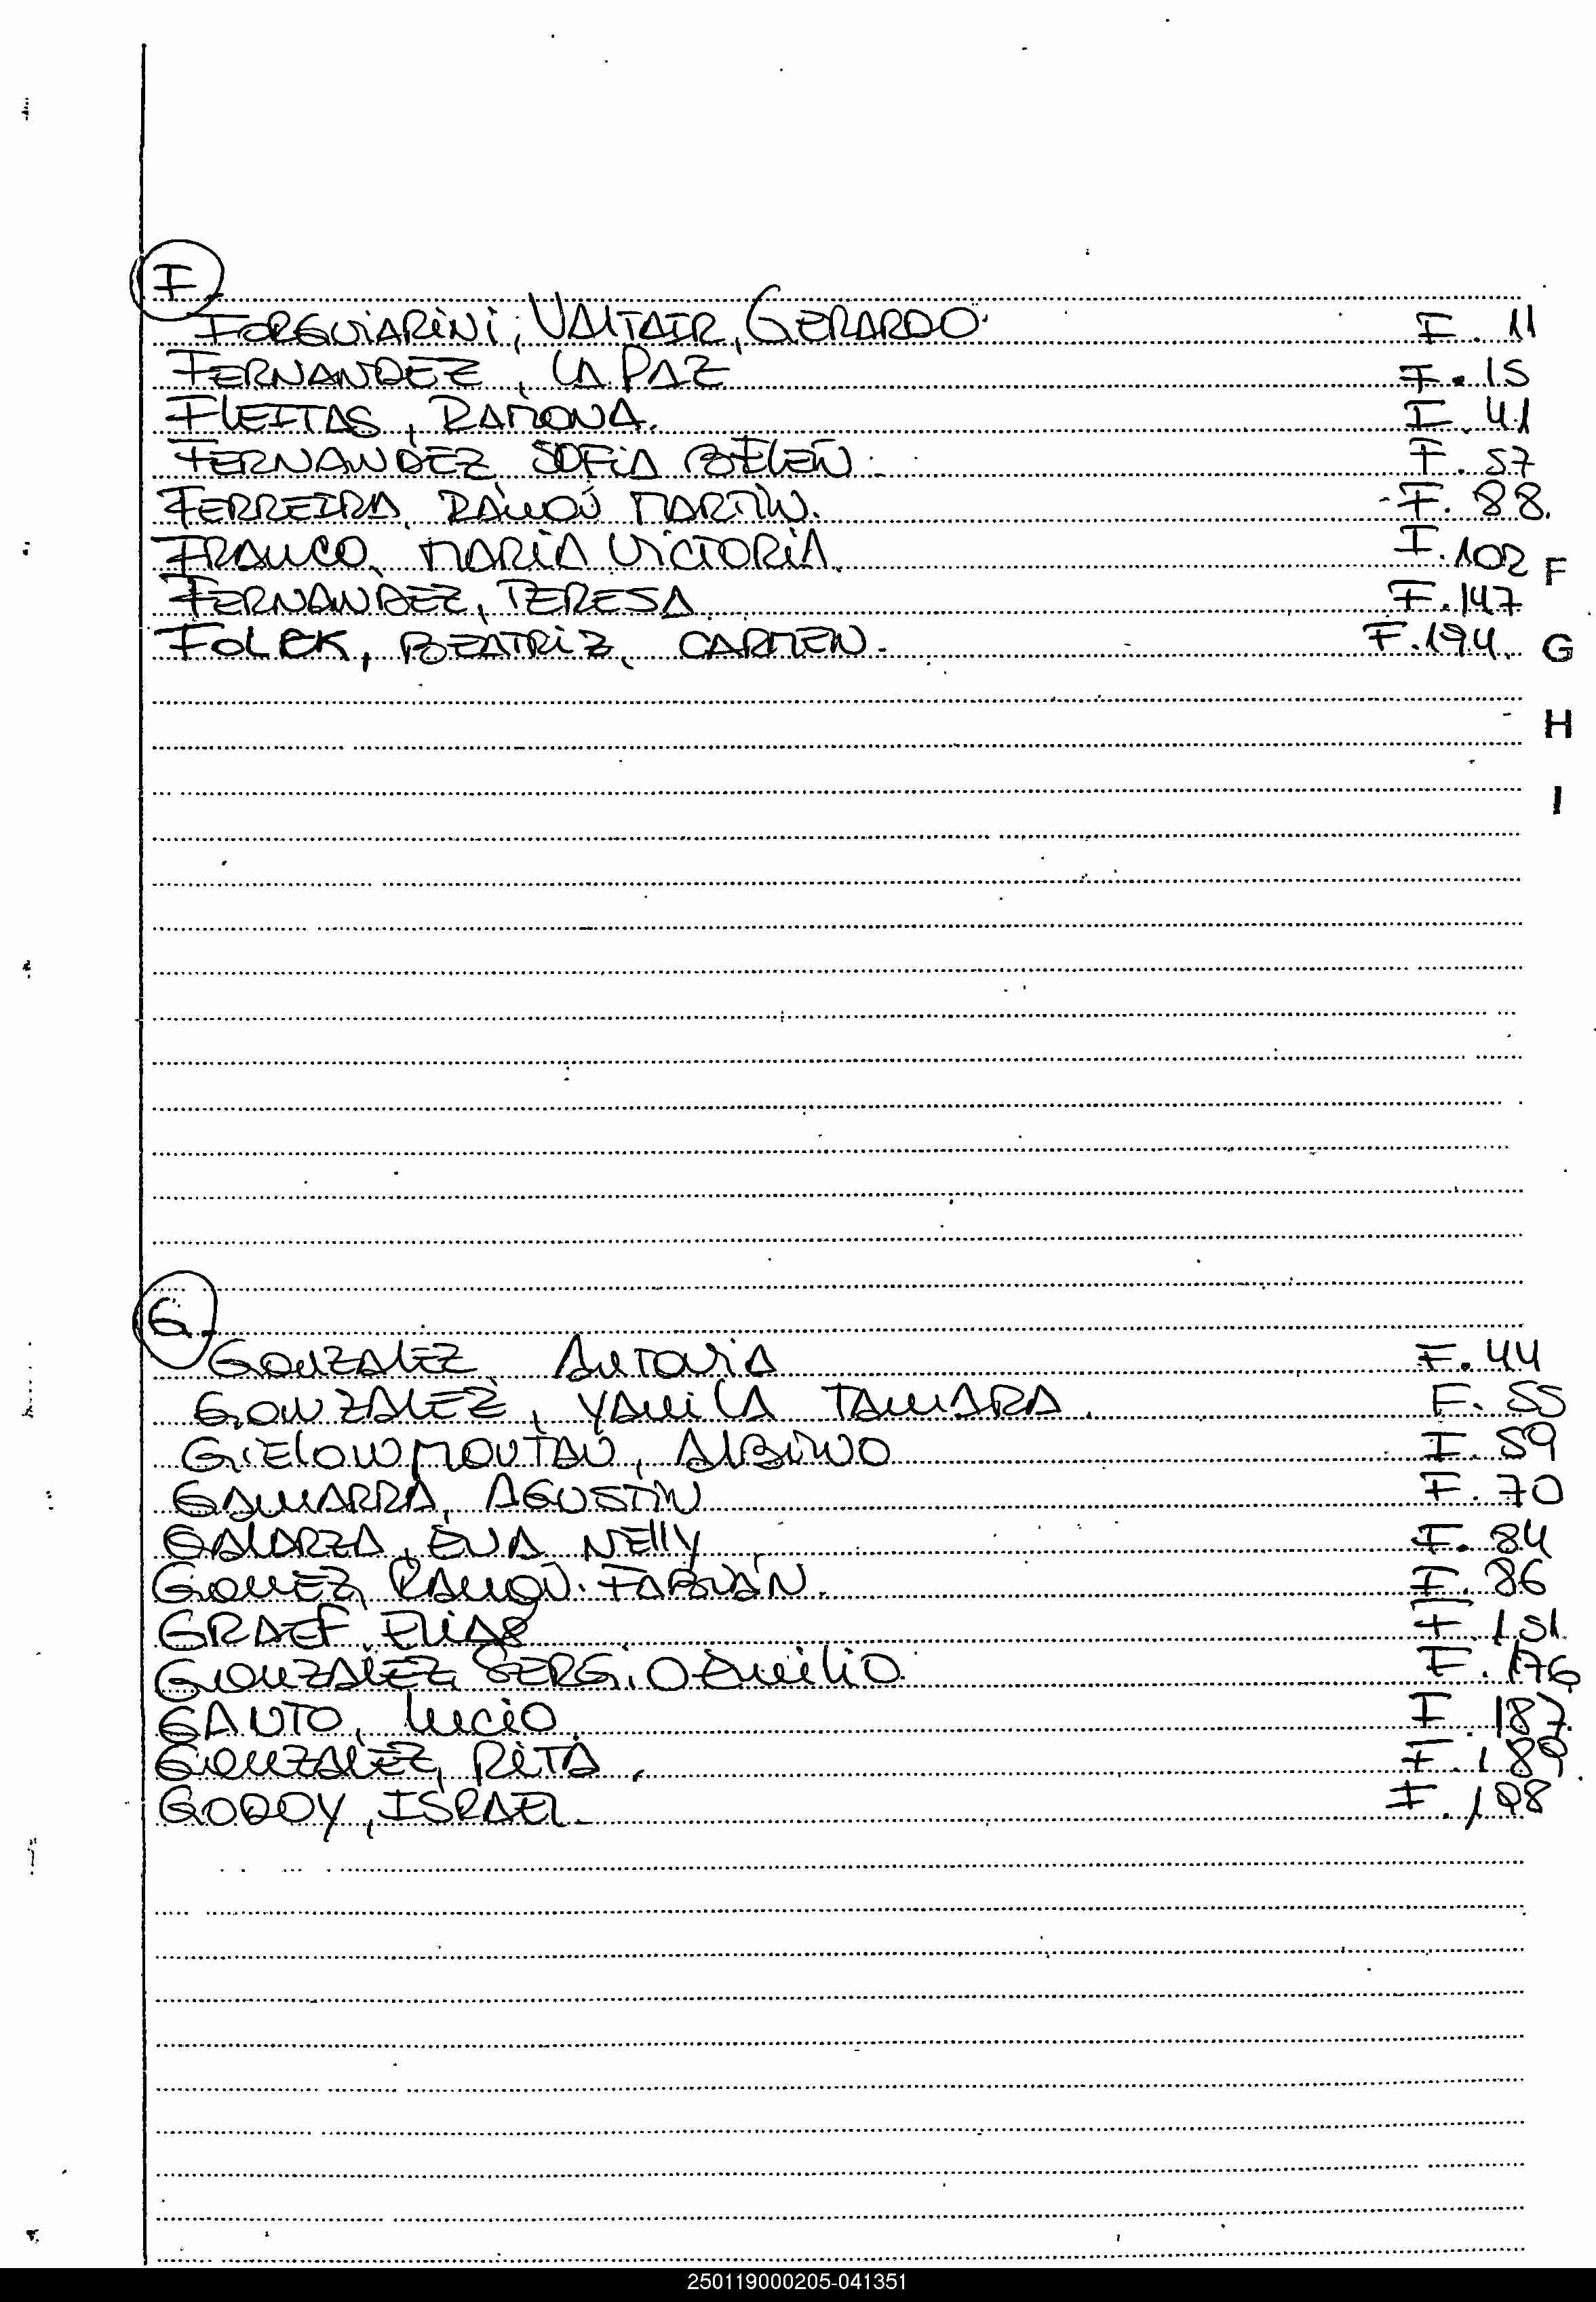 F
FORGUIARINI, VALTAIR, GERARDO. F. 11
FERNANDEZ, LA PAZ F. 15
FLEITAS, RAMONA. F. 41
FERNANDEZ SOFIA BELEN. F. 57
FERREIRA, RAMON MARTIN. F. 88.
FRANCO, MARIA VICTORIA. F. 102
F
FERNANDEZ, TERESA F. 147
FOLEK, BEATRIZ, CARMEN. F. 194.
G
H
I
G
GONZALEZ, ANTONIA F. 44
GONZALEZ, YAMILA TAMARA. F. 55
GIELOWMOUTAN, ALBINO F. 59
GAMARRA, AGUSTIN F. 70
GALARZA, EVA NELLY F. 84
GOMEZ, RAMON. FABIÁN. F. 86
GRAEF, ELIAS F. 151
GONZALEZ, SERGIO EMILIO. F. 176
GAUTO, LUCIO F. 187.
GONZALEZ, RITA. F. 189
GODOY, ISRAEL. F. 198
250119000205-041351